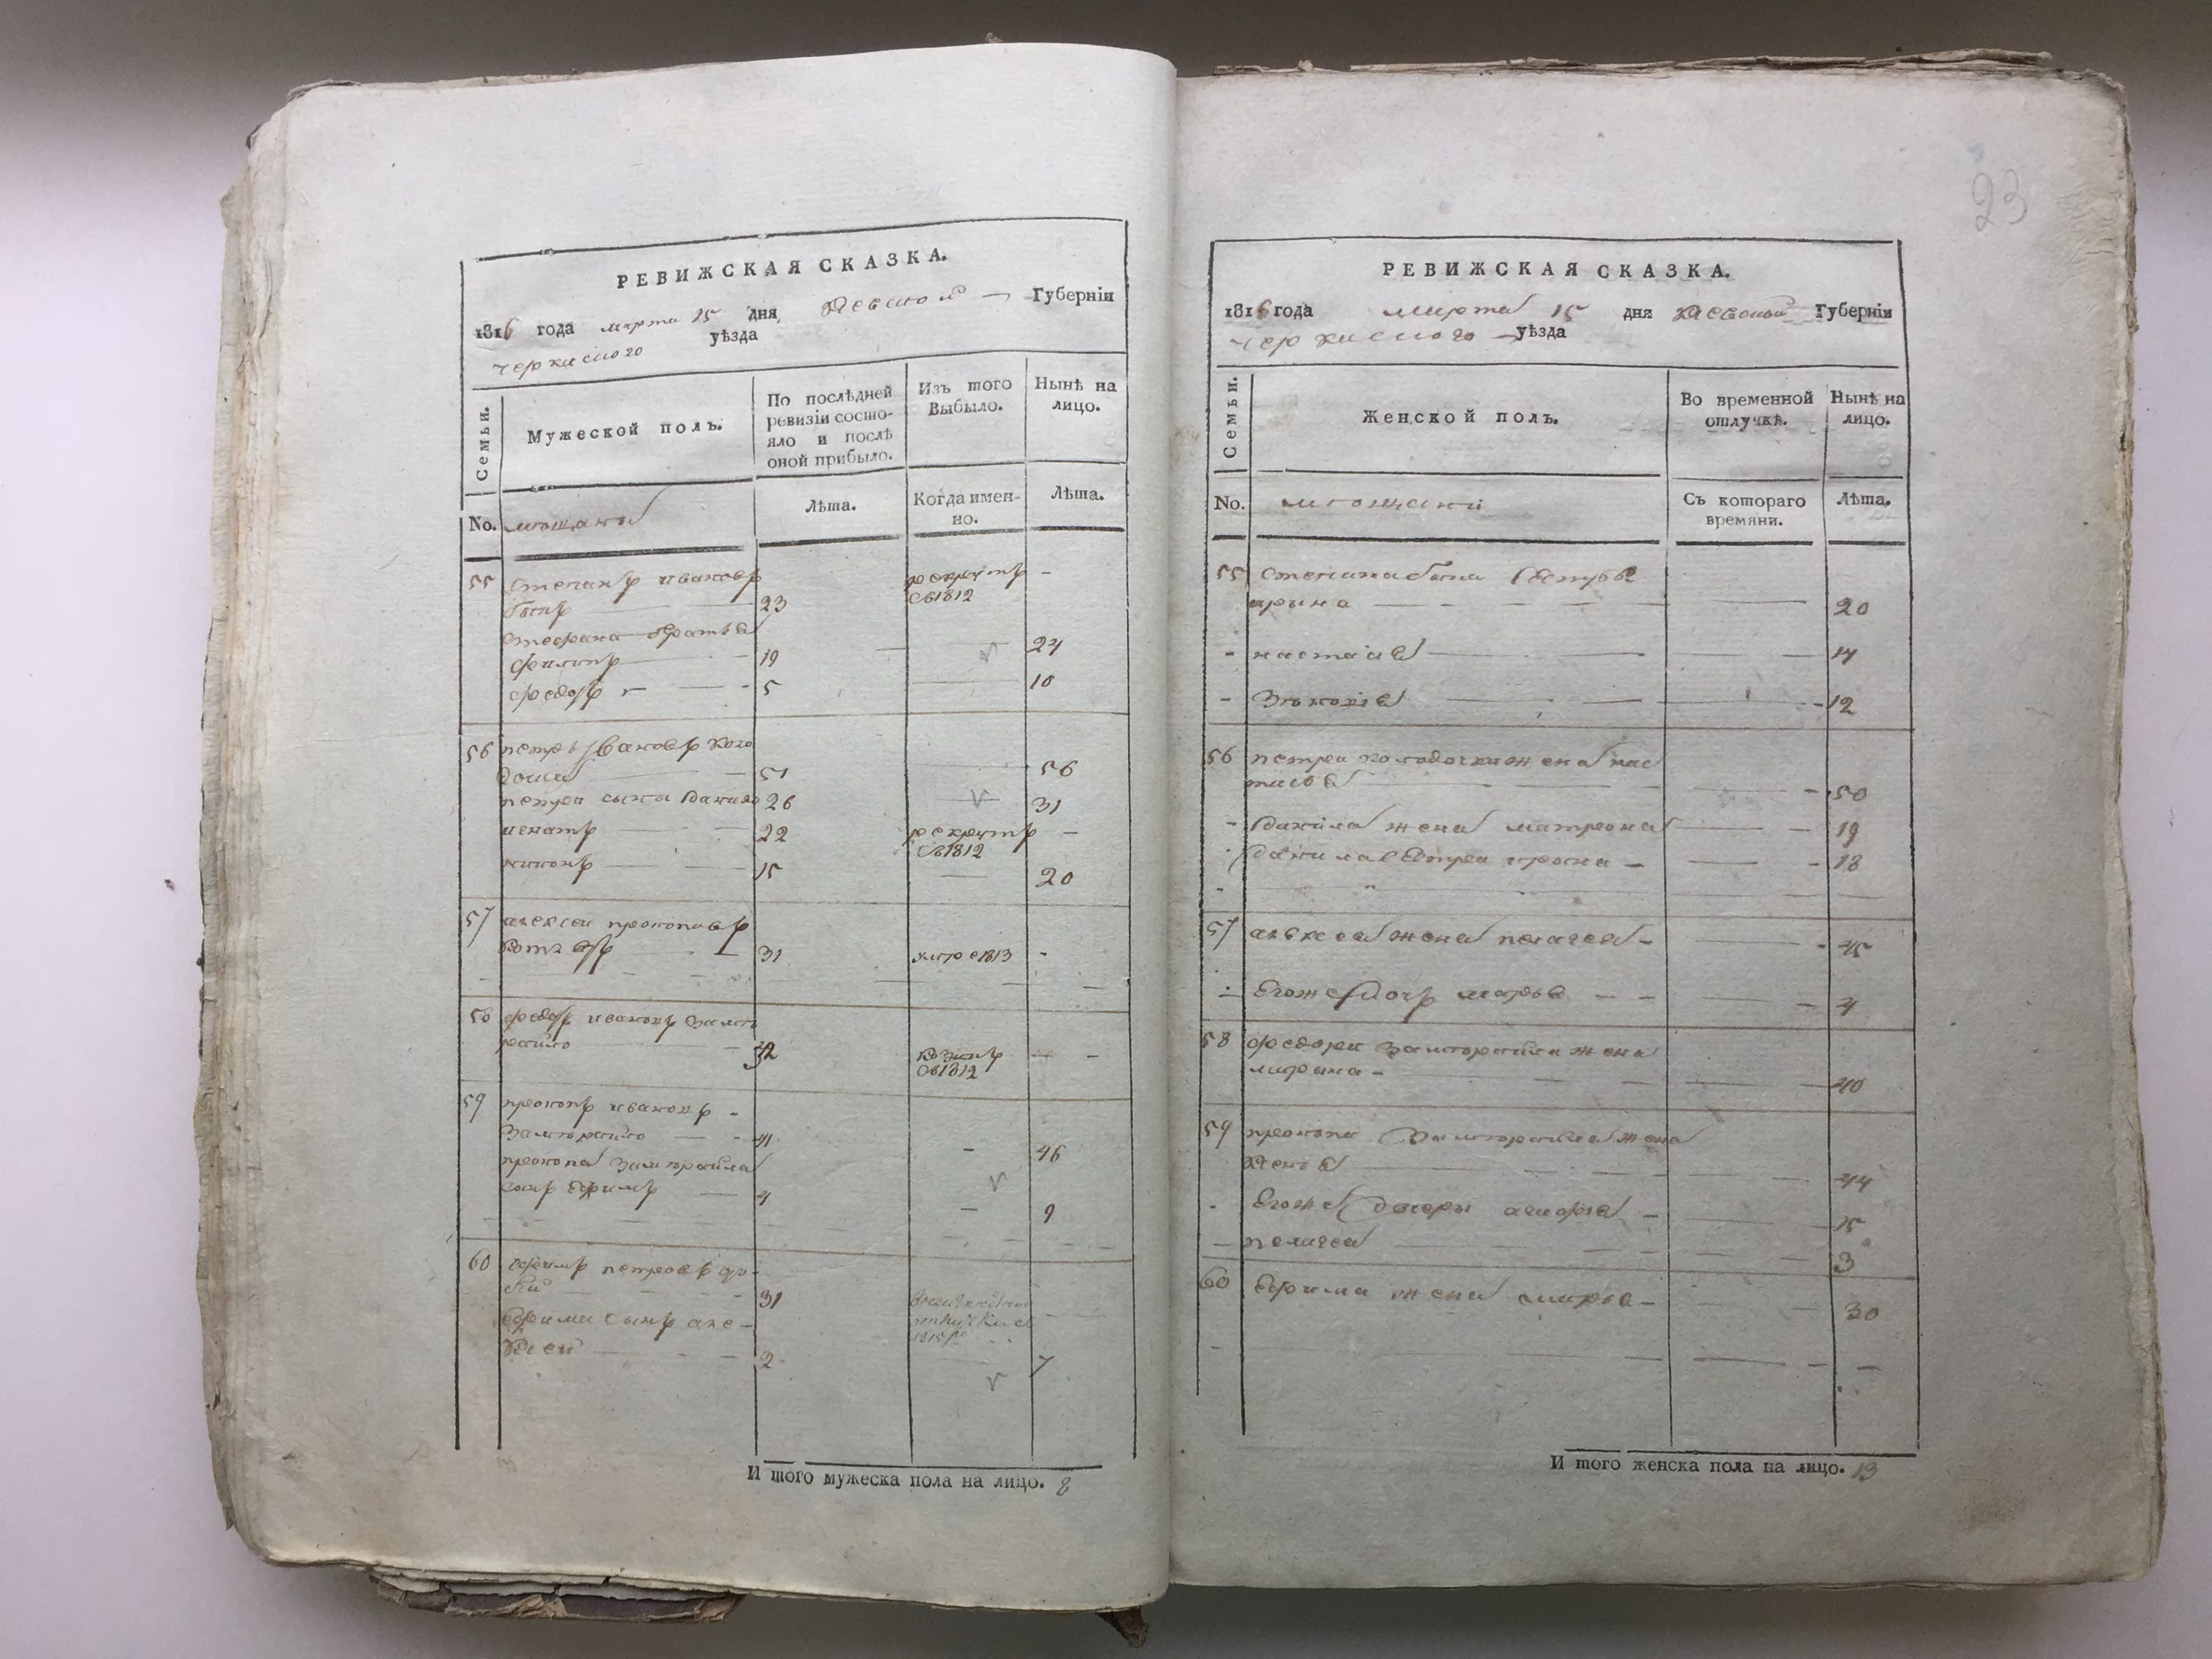 РЕВИЖСКАЯ СКАЗКА.
1816 года марта 15 дня Киевской Губерніи
черкаского уѣзда
Семьи.
Мужеской полъ.
По послѣдней ревизіи состо-
яло и послѣ
оной прибыло.
Изъ того
Выбыло.
Нынѣ на
лицо.
No. мещане
Лѣта.
Когда имен-
но.
Лѣта.
55 Степанъ ивановъ рекрутъ -
23 св1812
Стефана братья
филипъ 19 24
федоръ 5 10
56 петръ Ивановъ коло
дочка 51 56
петра сыны данило 26 31
игнатъ 22 рекрутъ -
св1812
никонъ 15 20
57 алексеи прокоповъ
31 умре 1813 -
58 федоръ ивановъ замо
райло 32
св1812
59 прокопъ ивановъ
Замо райло 41 46
прокопа Заморайла
сынъ Ефимъ 4 9
60 Ефимъ петровъ
31
Ефима сынъ але-
ксей 2 7
И того мужеска пола на лицо. 8
23
РЕВИЖСКАЯ СКАЗКА.
1816 года марта 15 дня Киевской Губерніи
черкаского уѣзда
Семьи.
Женской полъ.
Во временной
отлучкѣ.
Нынѣ на
лицо.
No. мещанки
Съ котораго
времяни.
Лѣта.
55 Степана сестры
ирина 20
- настасія 14
- Зѣновія 12
56 петра колодочки жена нас
тасія 50
- данила жена матрона 19
данила сестра ирина 18
57 алексея жена пелагея 45
Егожъ дочь марья 4
58 федора Заморайла жена
марина 40
59 прокопа Заморайла жена
44
Егожъ дочери агафія 15
пелагея 3
60 Ефима жена марья 30
И того женска пола на лицо. 13